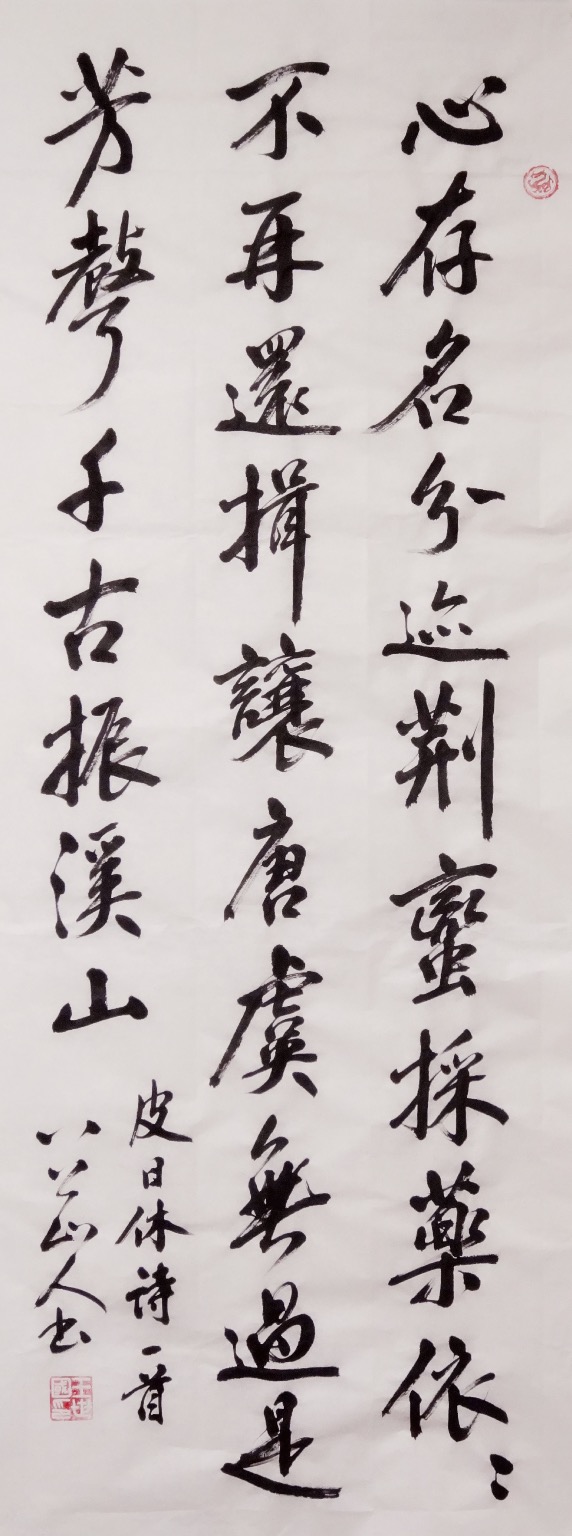 心存名分迹荊蠻採藥依〻
不再還揖讓唐虞無過是
芳聲千古振溪山
皮日休詩一首
八公山人书